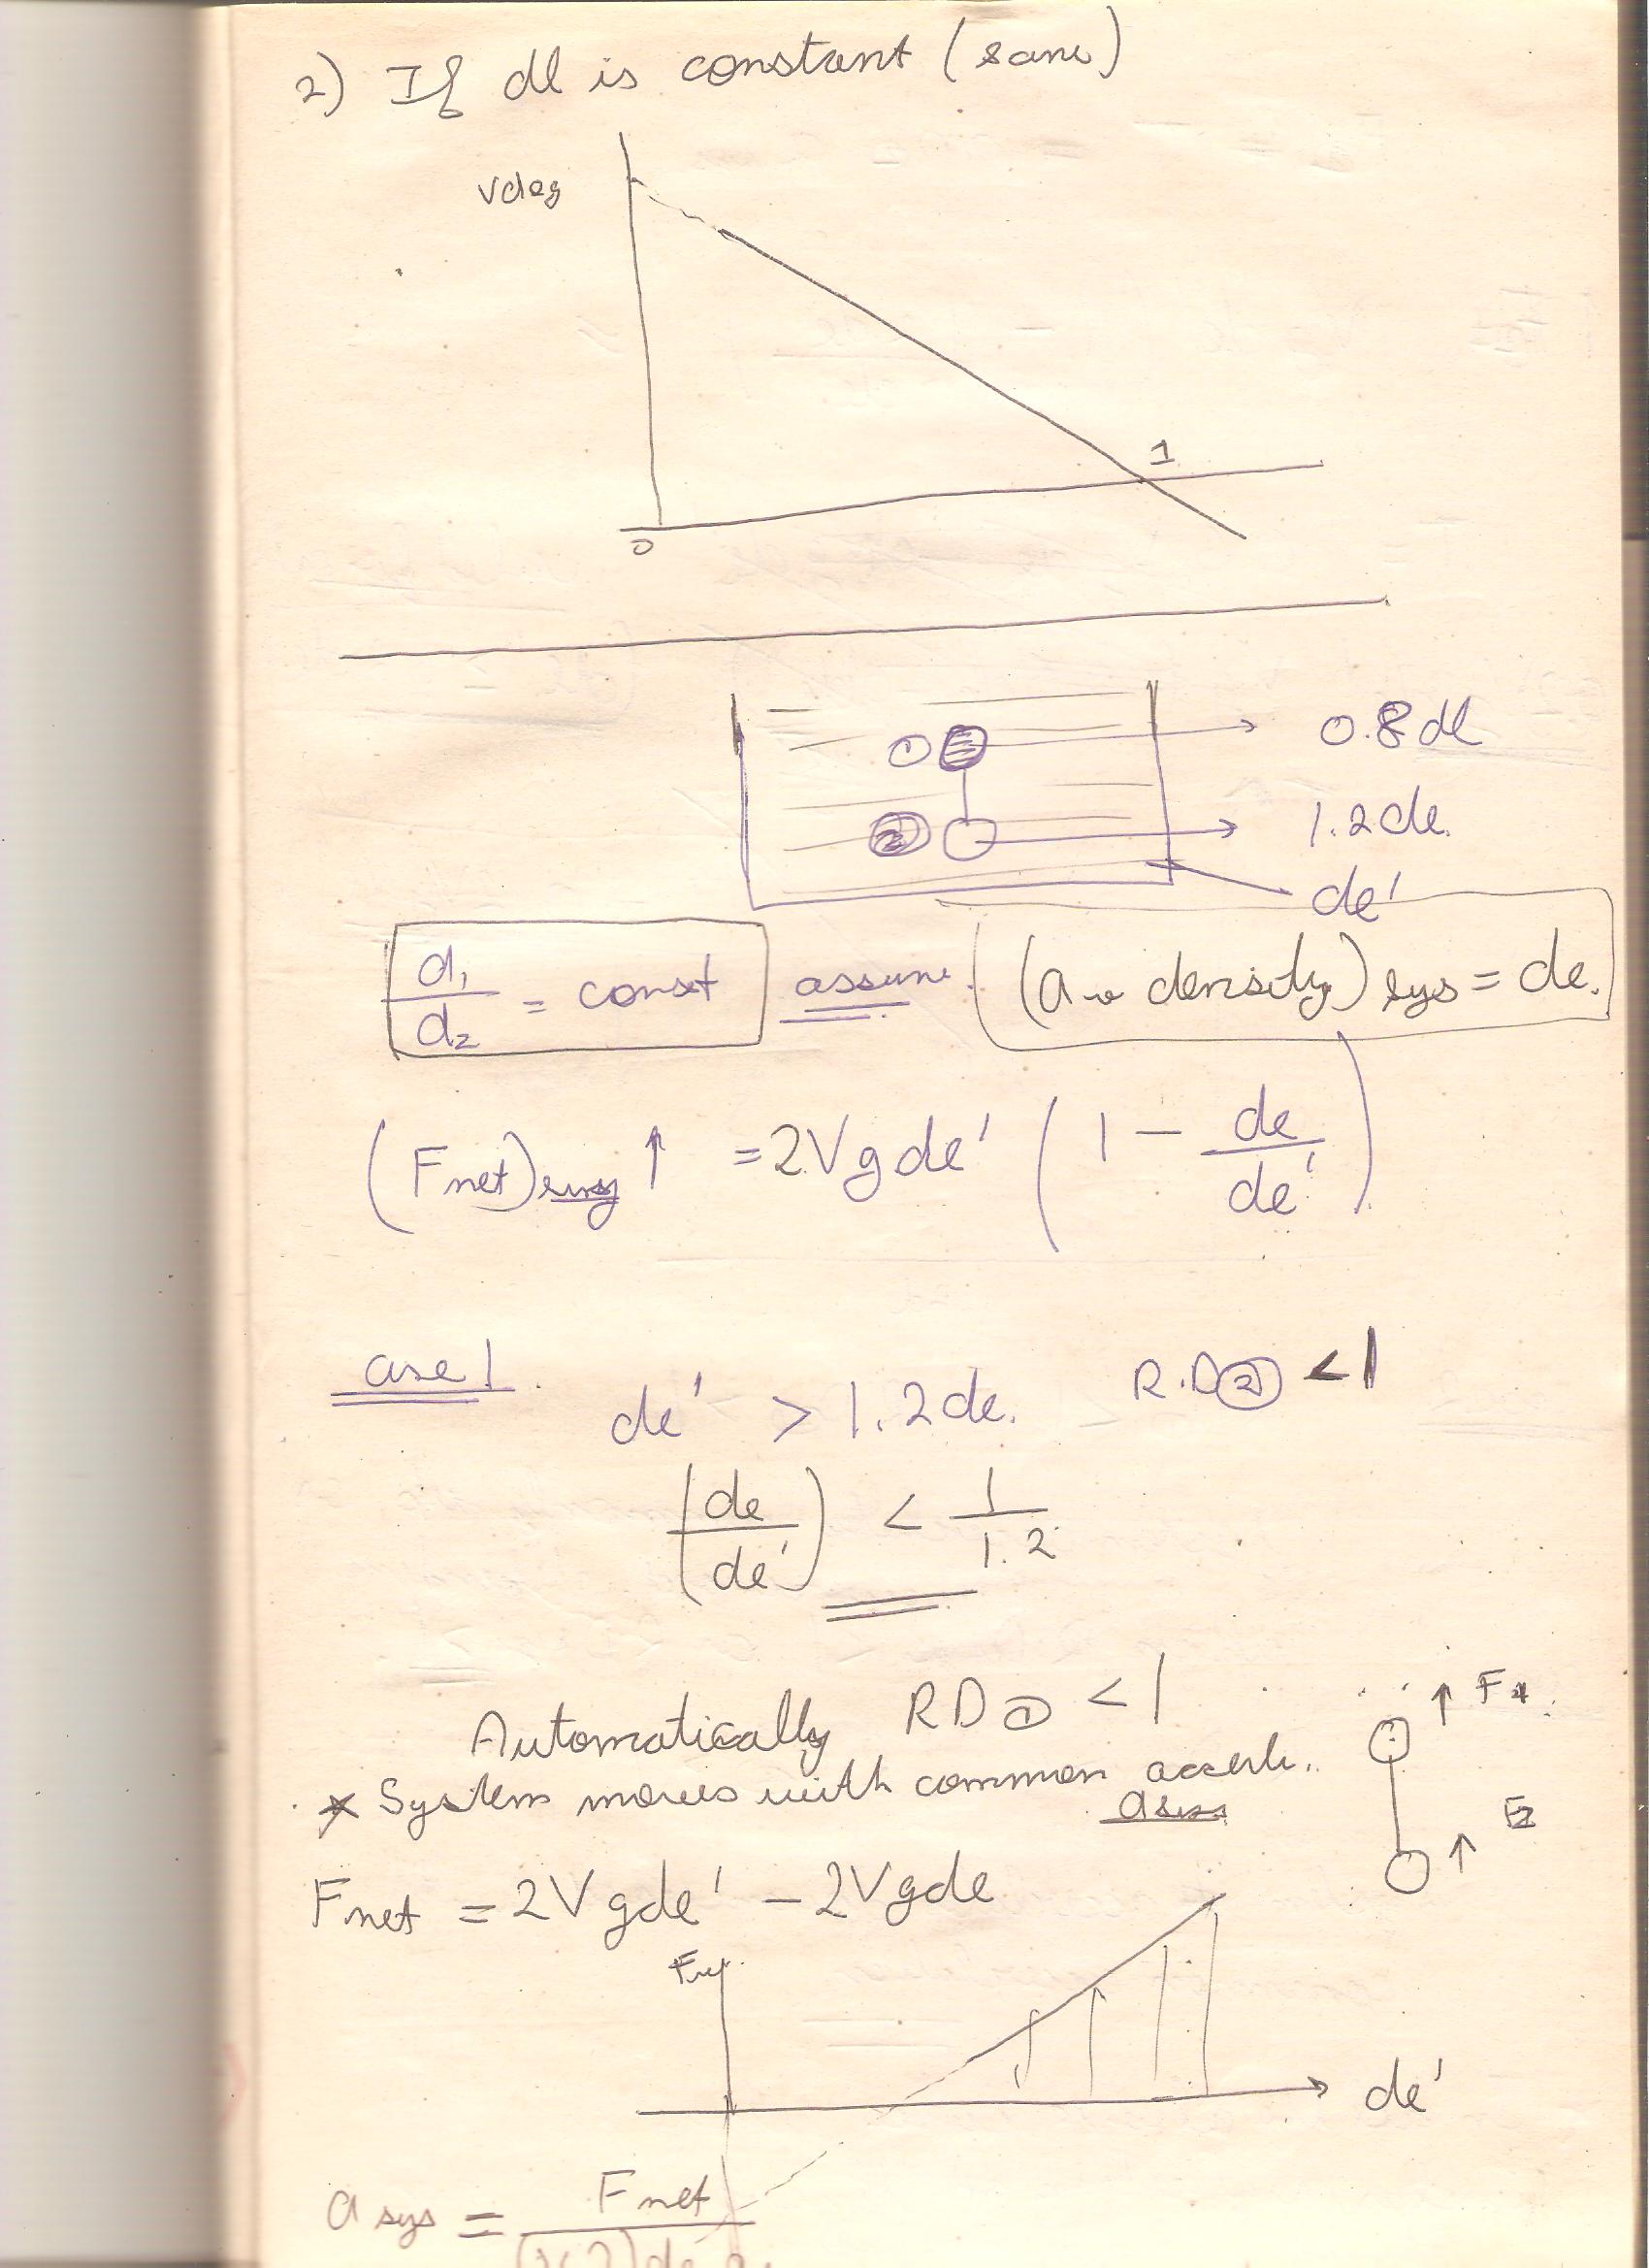 2) If dl is constant (same)
Vdlg
1
0
① 0.8dl
② 1.2dl
dl'
d1/d2 = const assume (av density)sys = dl.
(Fnet)sys ↑ = 2Vgdl' (1 - dl/dl')
case 1. dl' > 1.2dl. R.D② < 1
(dl/dl') < 1/1.2
Automatically RD① < 1
↑ F1.
* System moves with common accele..
asys
↑ F2
Fnet = 2Vgdl' - 2Vgdl
Fnet
dl'
asys = Fnet